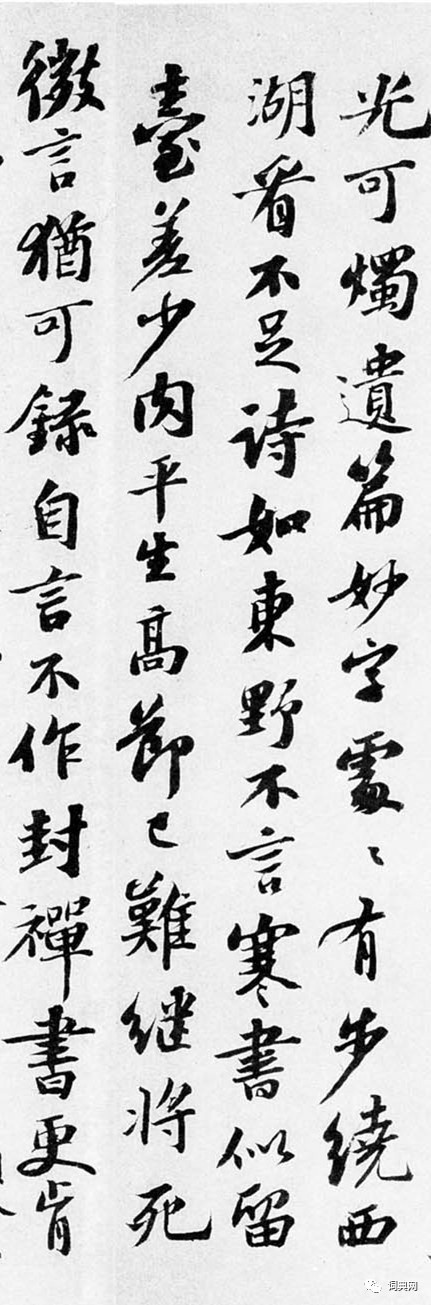 光可燭遺篇妙字處〻有步繞西
湖看不足詩如東野不言寒書似留
臺差少肉平生高節已難繼將死
微言猶可錄自言不作封禪書更肯
词典网